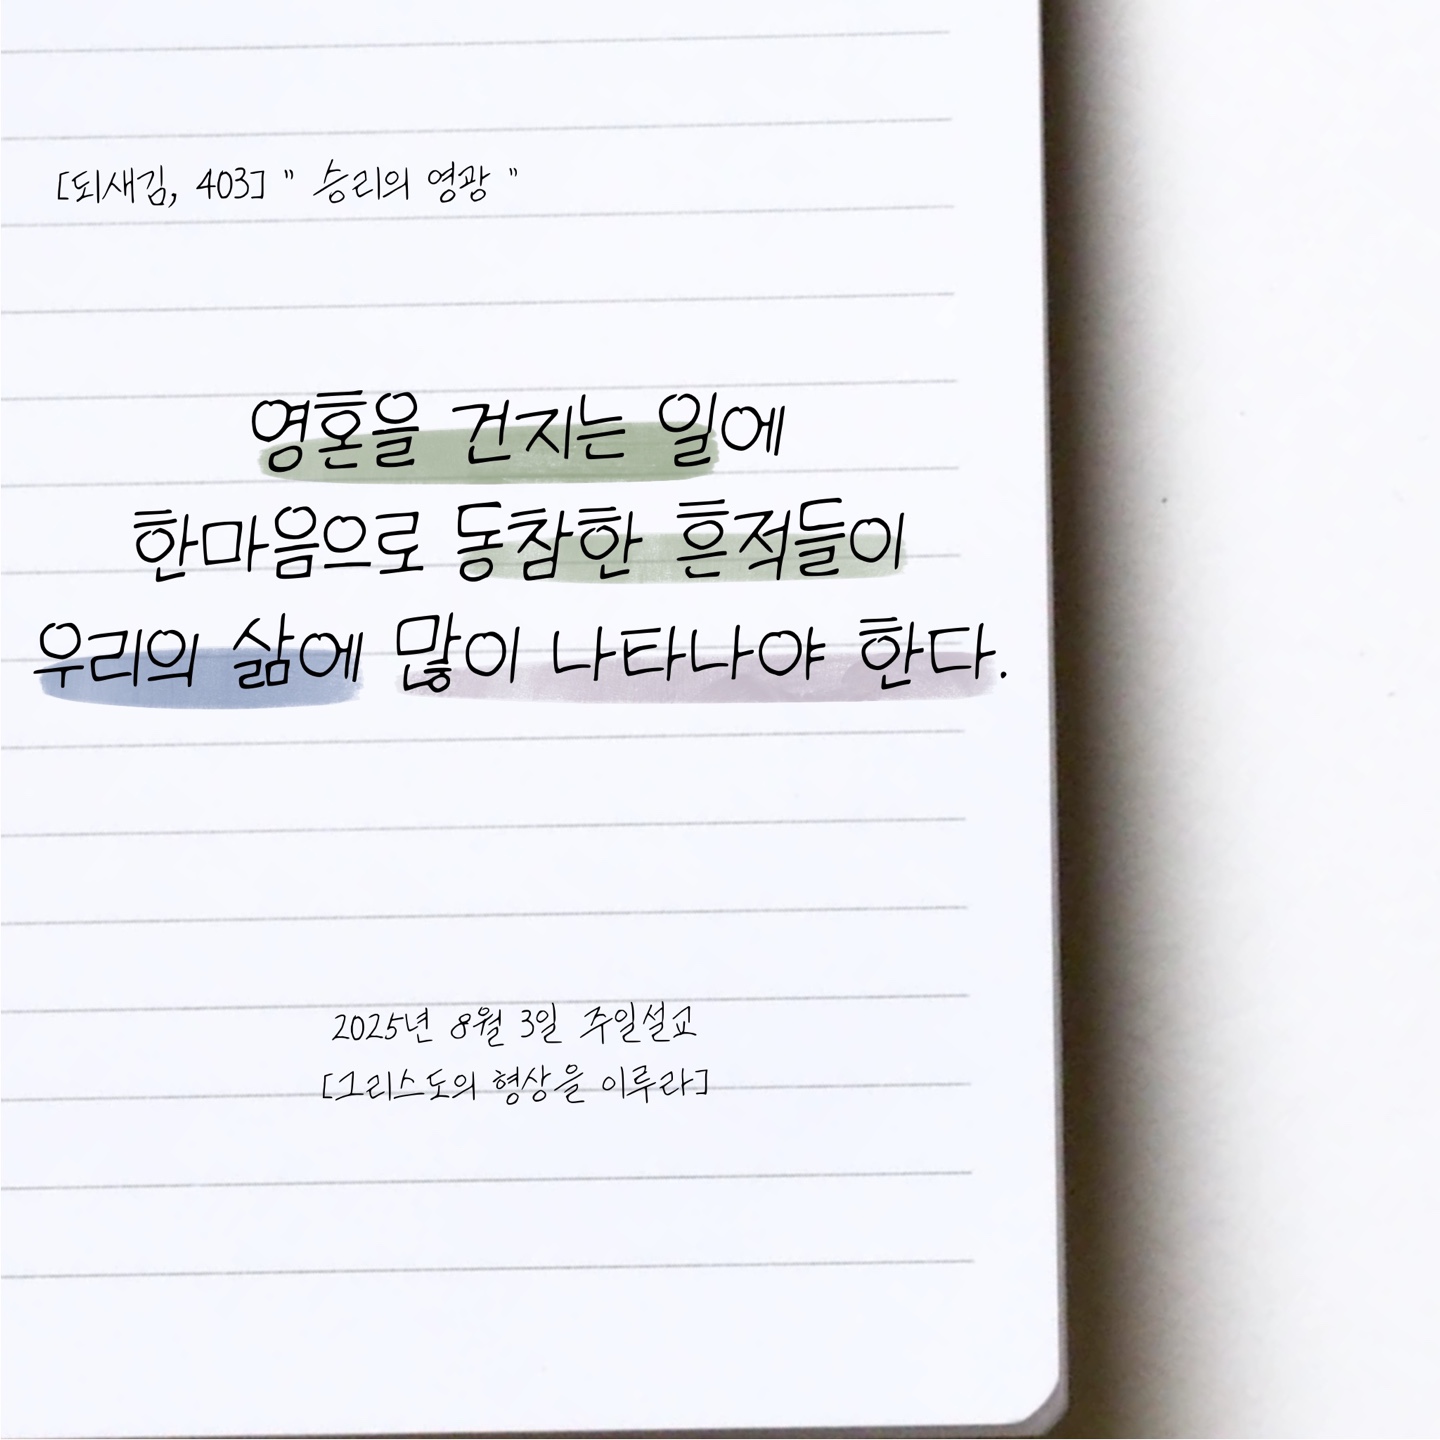 [되새김, 403] " 승리의 영광 "
영혼을 건지는 일에
한마음으로 동참한 흔적들이
우리의 삶에 많이 나타나야 한다.
2025년 8월 3일 주일설교
[그리스도의 형상을 이루라]